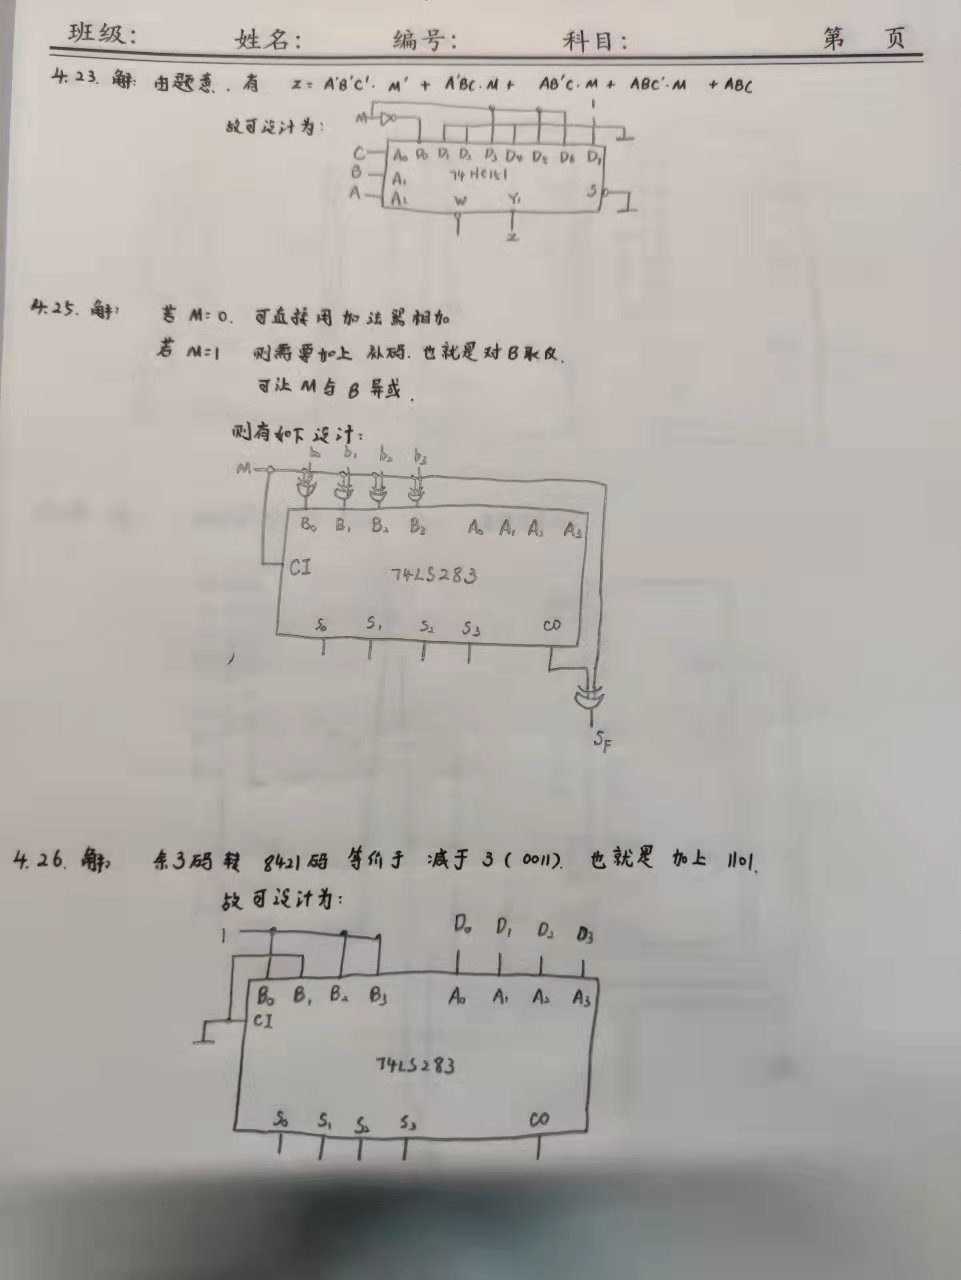 班级: 姓名: 编号: 科目: 第 页
4.23. 解: 由题意, 有 Z = A'B'C'·M' + A'BC·M + AB'C·M + ABC'·M + ABC
故可设计为:
M 1
C A₀ D₀ D₁ D₂ D₃ D₄ D₅ D₆ D₇
B A₁ 74HC151 S
A A₂ W Y₁
Z
4.25. 解: 若 M=0. 可直接用加法器相加
若 M=1 则需要加上补码. 也就是对B取反.
可让 M与 B 异或.
则有如下设计:
b₀ b₁ b₂ b₃
M
B₀ B₁ B₂ B₃ A₀ A₁ A₂ A₃
CI 74LS283
S₀ S₁ S₂ S₃ CO
S_F
4.26. 解: 余3码转 8421码 等价于 减于 3 (0011). 也就是 加上 1101.
故可设计为:
1 D₀ D₁ D₂ D₃
B₀ B₁ B₂ B₃ A₀ A₁ A₂ A₃
CI
74LS283
S₀ S₁ S₂ S₃ CO